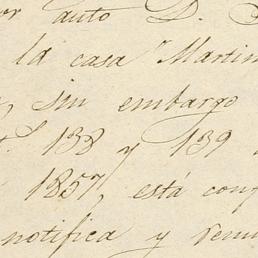 por auto D.
la casa "Martin
, sin embargo
138 y 139
1857, está conf
notifica y renu